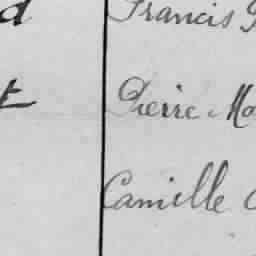 d Francis
t Pierre Ma
Camille